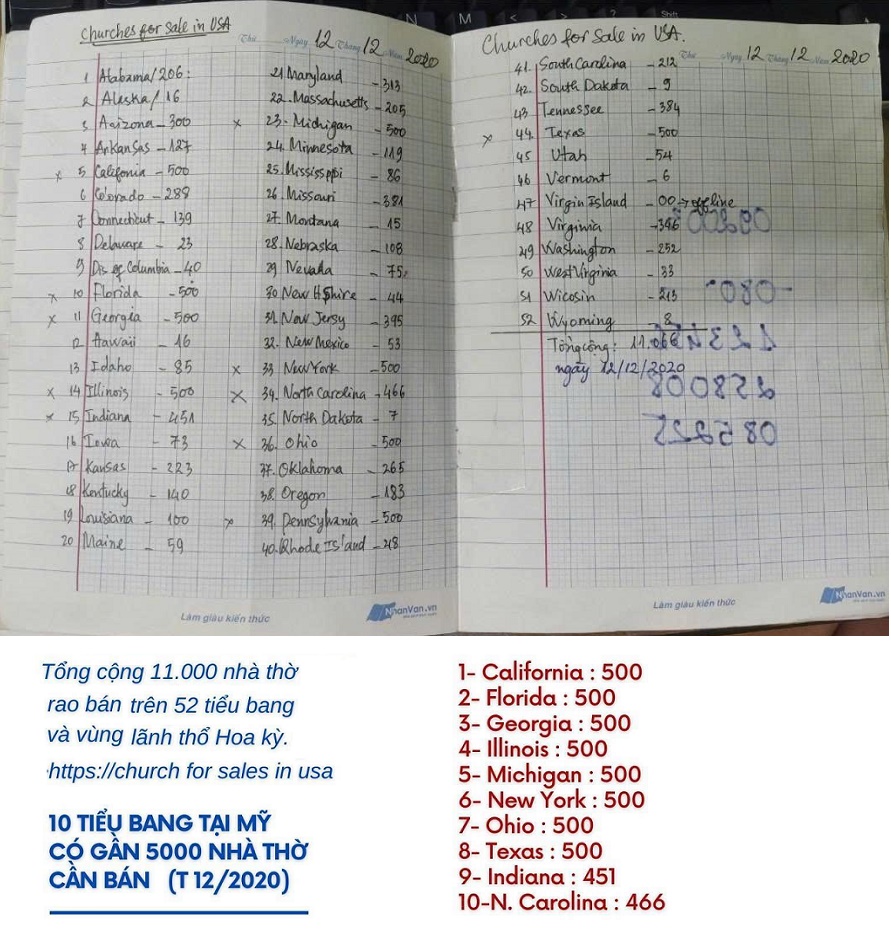 Churches for Sale in USA
Thứ Ngày 12 Tháng 12 Năm 2020
1 Alabama/206:
2 Alaska/16
3 Arizona - 300
4 Arkansas - 127
x 5 California - 500
6 Colorado - 288
7 Connecticut - 139
8 Delaware - 23
9 Dis of Columbia - 40
x 10 Florida - 500
x 11 Georgia - 500
12 Hawaii - 16
13 Idaho - 85
x 14 Illinois - 500
x 15 Indiana - 451
16 Iowa - 73
17 Kansas - 223
18 Kentucky - 140
19 Louisiana - 100
20 Maine - 59
21 Maryland - 313
22. Massachusetts - 205
x 23. Michigan - 500
24. Minnesota - 119
25. Mississppi - 86
26. Missouri - 381
27. Montana - 15
28. Nebraska - 108
29. Nevada - 75
30 New Hshire - 44
31. New Jersy - 395
32. New Mexico - 53
x 33. New York - 500
x 34. North Carolina - 466
35. North Dakota - 7
x 36. Ohio - 500
37. Oklahoma - 265
38. Oregon - 183
x 39. Pennsylvania - 500
40. Rhode Island - 28
Làm giàu kiến thức
NhanVan.vn
Churches for Sale in USA.
Thứ Ngày 12 Tháng 12 Năm 2020
41. South Carolina - 212
42. South Dakota - 9
43 Tennessee - 384
x 44. Texas - 500
45 Utah - 54
46 Vermont - 6
47 Virgin Island - 00 → offline
48 Virginia - 346
49 Washington - 252
50 West Virginia - 33
51 Wicosin - 213
52 Wyoming - 8
Tổng cộng: 11.066
ngày 12/12/2020
Làm giàu kiến thức
NhanVan.vn
Tổng cộng 11.000 nhà thờ
rao bán trên 52 tiểu bang
và vùng lãnh thổ Hoa kỳ.
https://church for sales in usa
10 TIỂU BANG TẠI MỸ
CÓ GẦN 5000 NHÀ THỜ
CẦN BÁN (T 12/2020)
1- California : 500
2- Florida : 500
3- Georgia : 500
4- Illinois : 500
5- Michigan : 500
6- New York : 500
7- Ohio : 500
8- Texas : 500
9- Indiana : 451
10-N. Carolina : 466